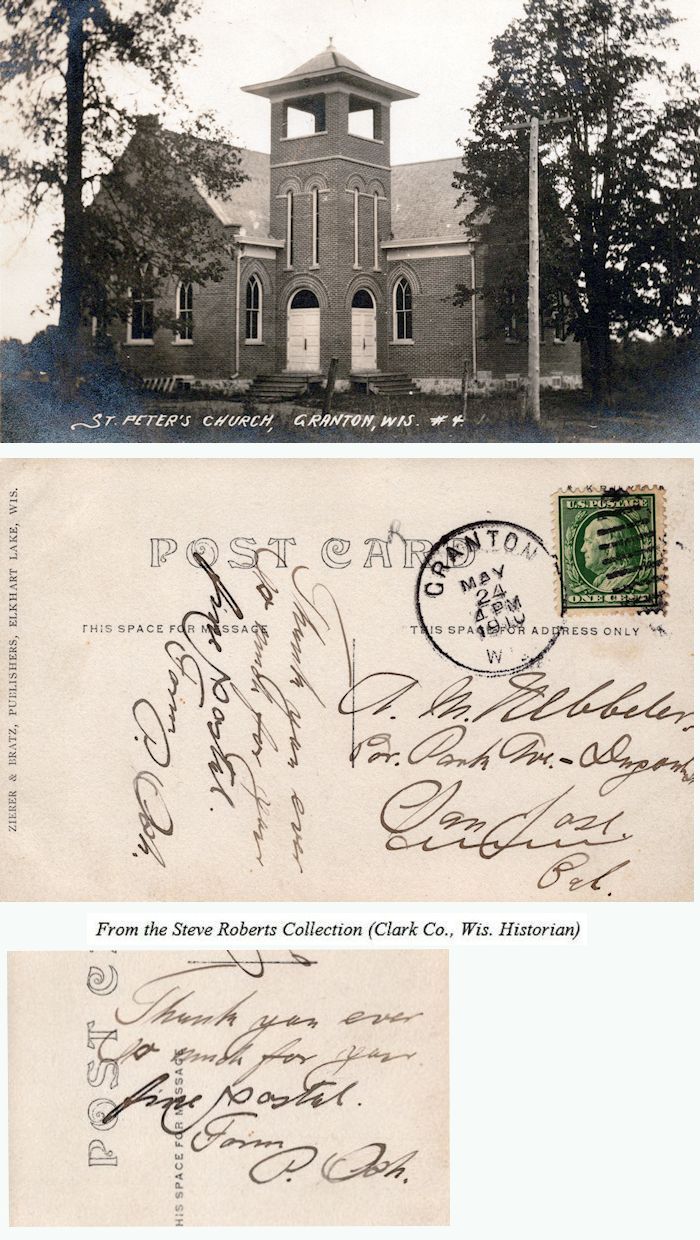 ST. PETER'S CHURCH, GRANTON, WIS. #4
ZIERER & BRATZ, PUBLISHERS, ELKHART LAKE, WIS.
POST CARD
U.S. POSTAGE
ONE CENT
GRANTON
MAY
24
4 PM
1910
W
THIS SPACE FOR MESSAGE
THIS SPACE FOR ADDRESS ONLY
Thank you ever
so much for your
fine postal.
Form
P.
A. M.
Cor. Park Ave. -
San Jose.
Cal.
From the Steve Roberts Collection (Clark Co., Wis. Historian)
POST C
HIS SPACE FOR MESSAGE
Thank you ever
so much for your
fine postal.
Form
P.